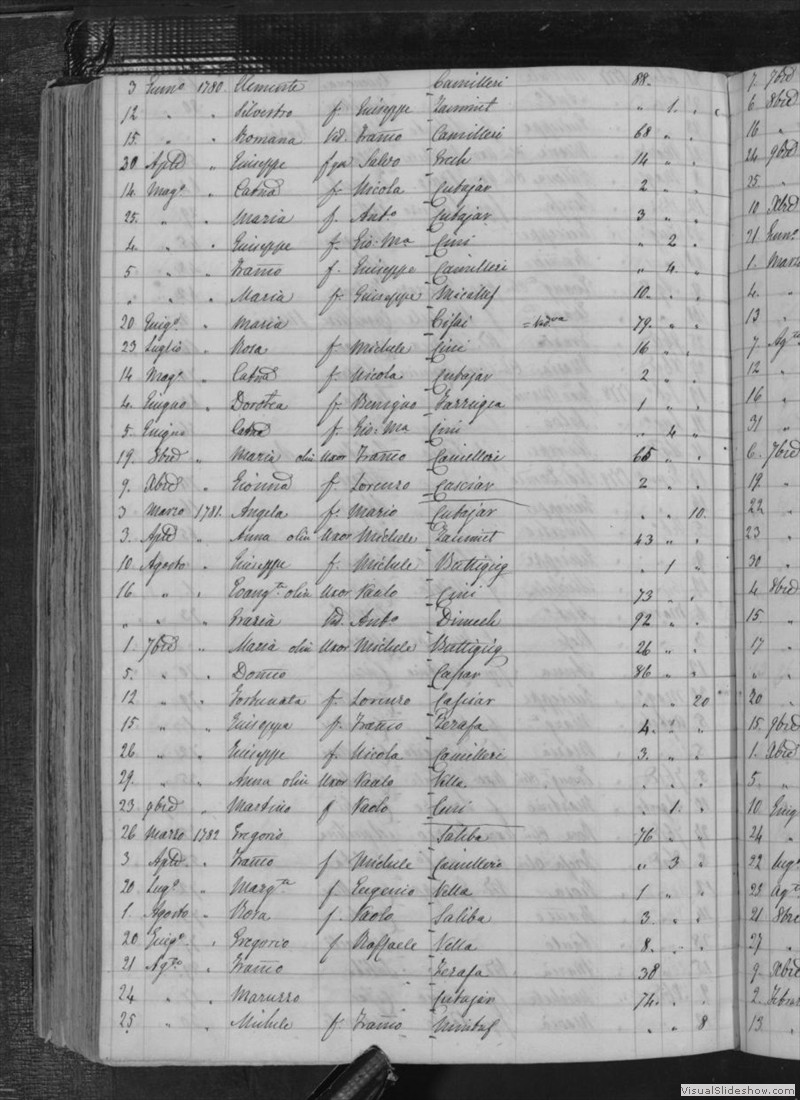 3 Genn° 1780 Clemente Camilleri 88.
12 " " Silvestro f. Giuseppe Zammit " 1. "
15. " " Romana Vid. Franco Camilleri 68 " "
30 Aple " Giuseppe f. Grech 14 " "
14. Mag° " Catna f. Nicola Cutajar 2 " "
25. " " Maria f. Anto Cutajar 3 " "
4. " " Giuseppe f. Gio: Ma Cini " 2 "
5 " " Franco f. Giuseppe Camilleri " 4 "
" " " Maria f. Giuseppe Micallef 10. " "
20 Giug° " Maria = Vid.va 79. " "
23 Luglio " Rosa f. Michele Cini 16 " "
14 Mag° " Catna f. Nicola Cutajar 2 " "
4. Giugno " Dorotea f. Benigno Farrugia 1 " "
5. Giugno Catna f. Gio: Ma Cini " 4 "
19. 8bre " Maria olim Uxor Franco Camilleri 65 " "
9. Xbre " Gionna f. Lorenzo Casciar 2 " "
3 Marzo 1781. Angela f. Mario Cutajar " " 10.
3. Aple " Anna olim Uxor Michele Zammit 43 " "
10. Agosto " Giuseppe f. Michele Buttigieg " 1 "
16 " " Evangta olim Uxor Paolo Cini 73 " "
" " " Grazia Vid. Anto Dimech 92 " "
1. 7bre " Maria olim Uxor Michele Buttigieg 26 " "
5. " " Domco Caşsar 86 " "
12 " " Fortunata f. Lorenzo Casciar " " 20
15 " " Giuseppa f. Franco Zerafa 4. " "
26 " " Giuseppe f. Nicola Camilleri 3. " "
29. " " Anna olim Uxor Paolo Vella
23 9bre " Martino f Paolo Cini " 1. "
26 Marzo 1782 Gregorio Saliba 76 " "
3 Aple " Franco f Michele Camilleri " 3 "
20 Lug° " Margta f Eugenio Vella 1 " "
1. Agosto " Rosa f. Paolo Saliba 3. " "
20 Giug° " Gregorio f Raffaele Vella 8. " "
21 Agto " Franco Zerafa 38
24 " " Maruzzo Cutajar 74. " "
25 " " Michele f. Franco " " 8
7. 9bre
6 8bre
16 "
24 9bre
25 "
10 Xbre
21 Genn°
1. Marzo
4. "
13 "
7. Agto
12 "
16 "
31 "
6. 7bre
19. "
22 "
23 "
30 "
4 8bre
15 "
17 "
" "
20 "
15. 9bre
1. Xbre
5. "
10 Giug
24 "
22 Lug°
23 Agto
21 8bre
27 "
9. Xbre
2. Febrar
13. "
VisualSlideshow.com